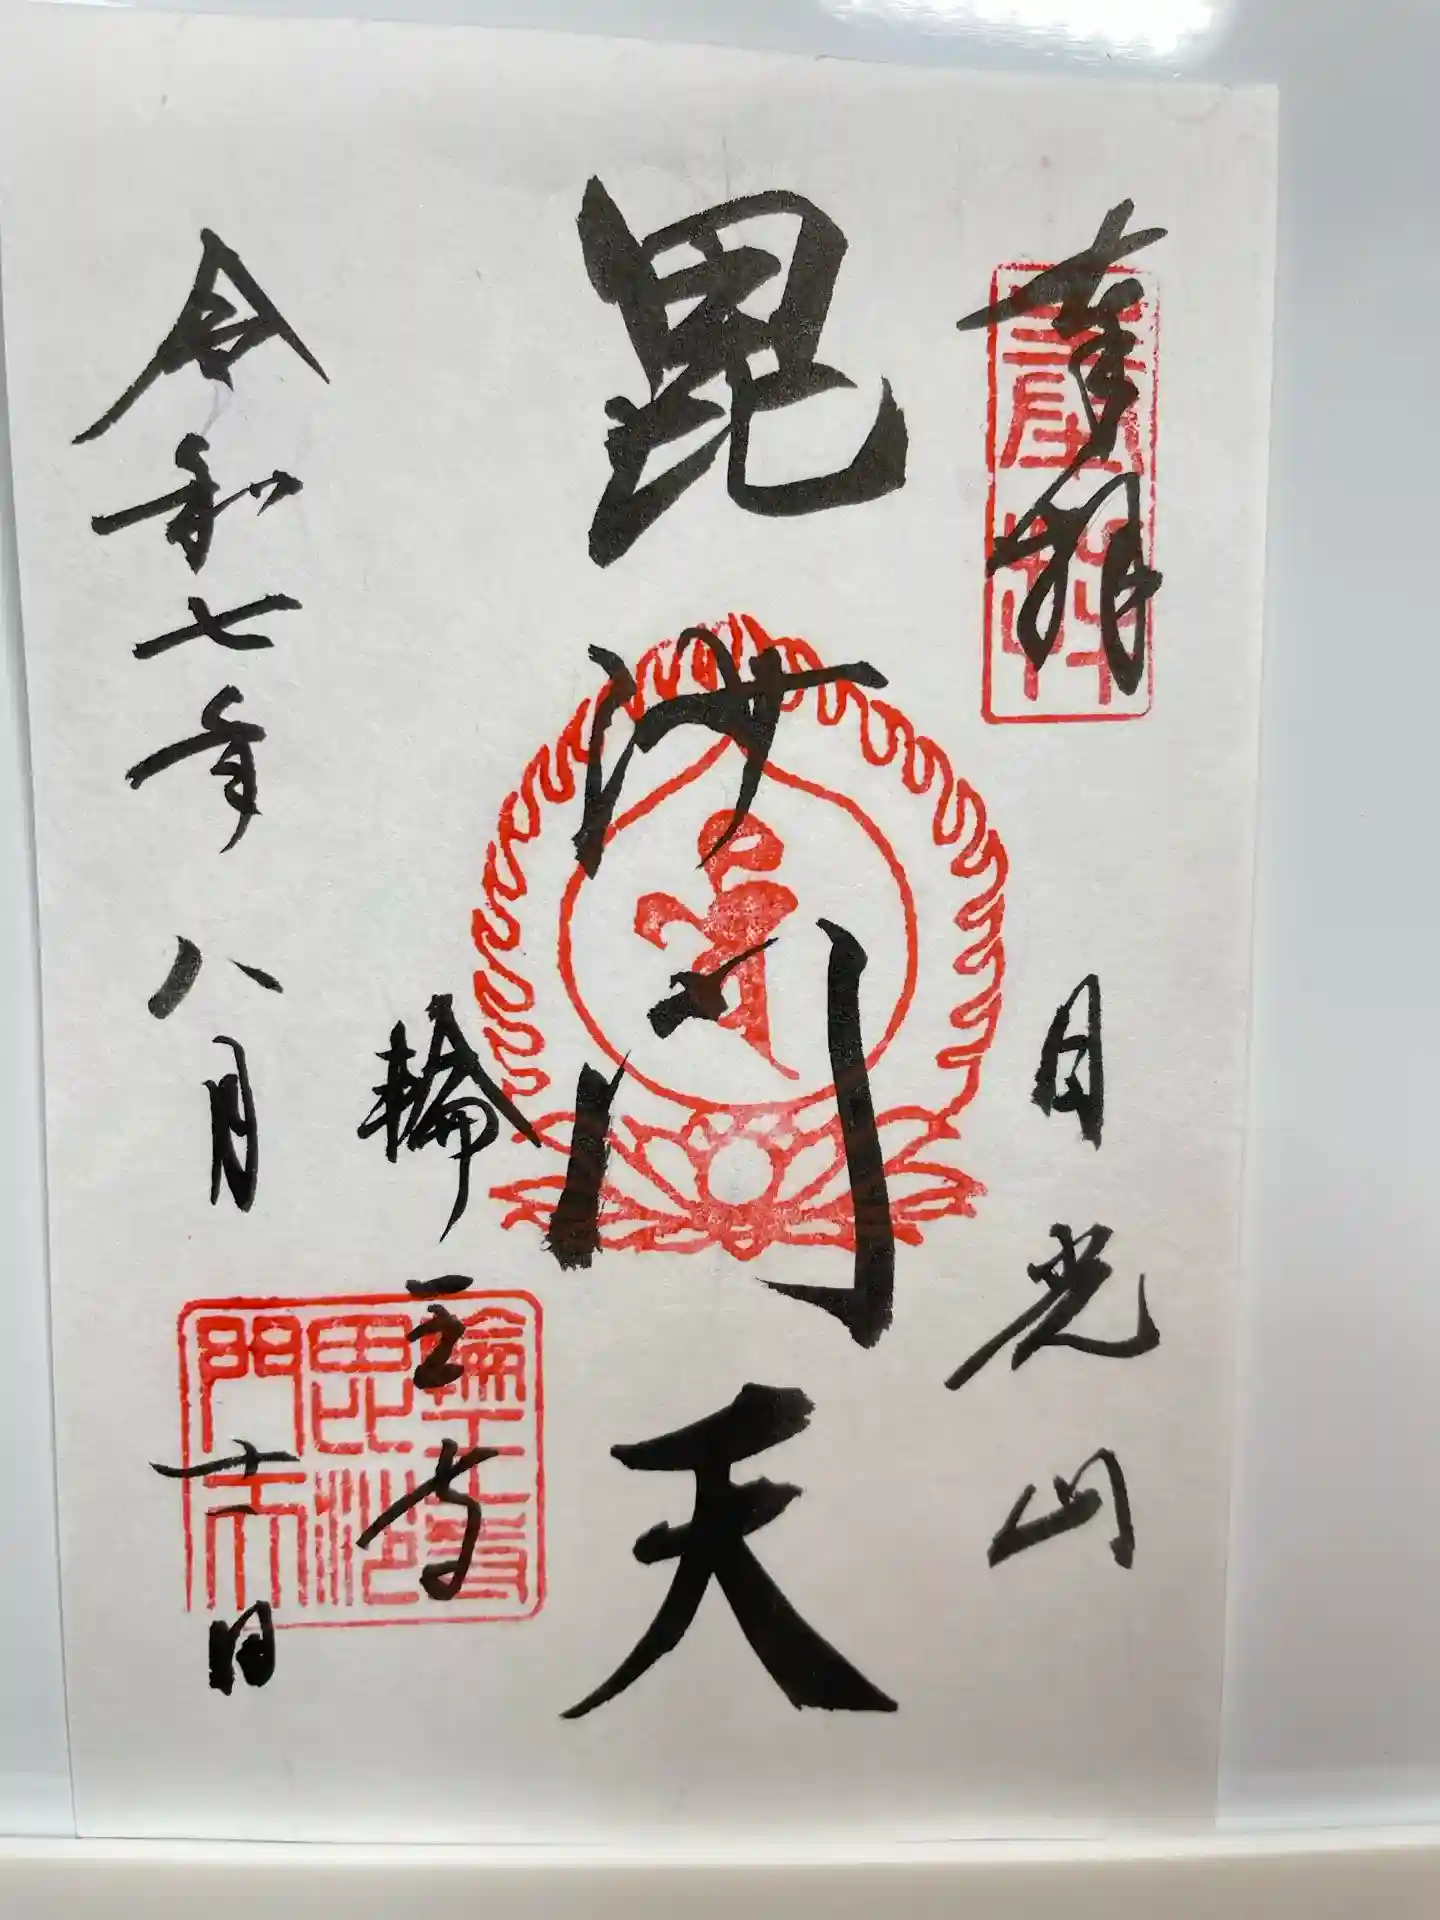 奉拝
日光山
毘沙門天
輪王寺
令和七年八月十一日
輪王寺
毘沙
門天